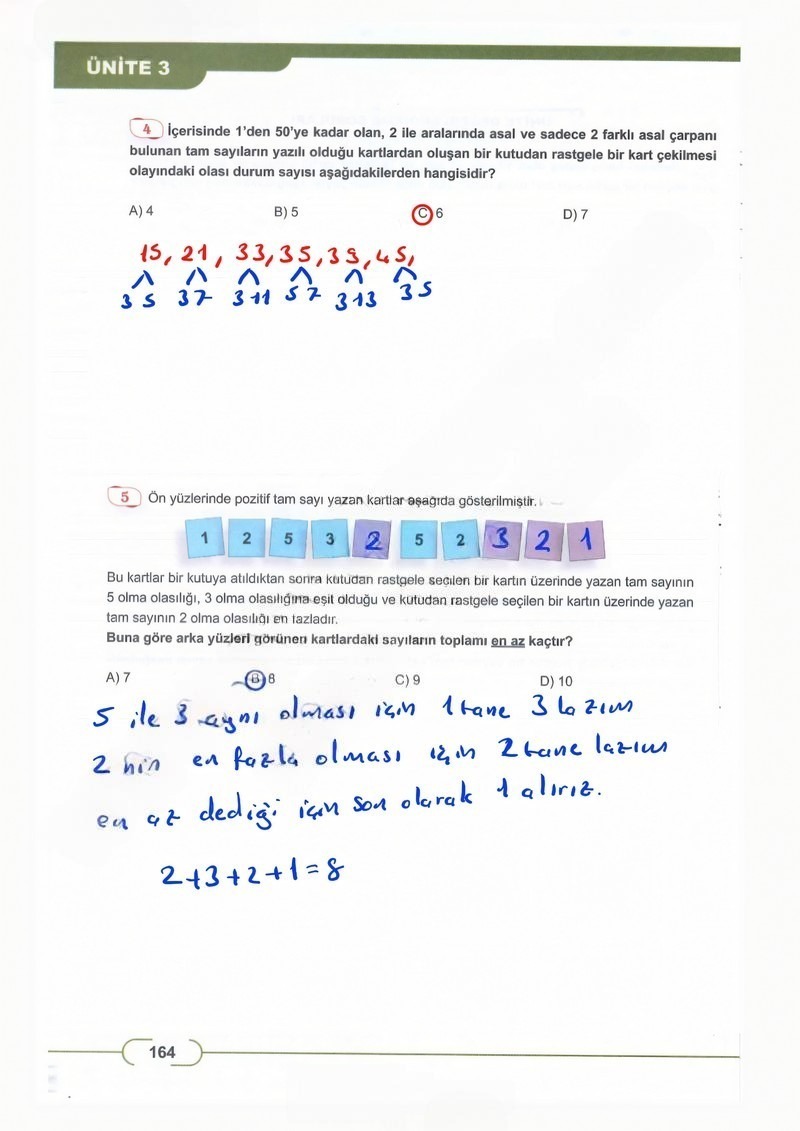 ÜNİTE 3
4 İçerisinde 1'den 50'ye kadar olan, 2 ile aralarında asal ve sadece 2 farklı asal çarpanı
bulunan tam sayıların yazılı olduğu kartlardan oluşan bir kutudan rastgele bir kart çekilmesi
olayındaki olası durum sayısı aşağıdakilerden hangisidir?
A) 4 B) 5 C) 6 D) 7
15, 21, 33, 35, 39, 45,
3 5 3 7 3 11 5 7 3 13 3 5
5 Ön yüzlerinde pozitif tam sayı yazan kartlar aşağıda gösterilmiştir.
1 2 5 3 2 5 2 3 2 1
Bu kartlar bir kutuya atıldıktan sonra kutudan rastgele seçilen bir kartın üzerinde yazan tam sayının
5 olma olasılığı, 3 olma olasılığına eşit olduğu ve kutudan rastgele seçilen bir kartın üzerinde yazan
tam sayının 2 olma olasılığı en fazladır.
Buna göre arka yüzleri görünen kartlardaki sayıların toplamı en az kaçtır?
A) 7 B) 8 C) 9 D) 10
5 ile 3 aynı olması için 1 tane 3 lazım
2 nin en fazla olması için 2 tane lazım
en az dediği için son olarak 1 alırız.
2+3+2+1=8
164